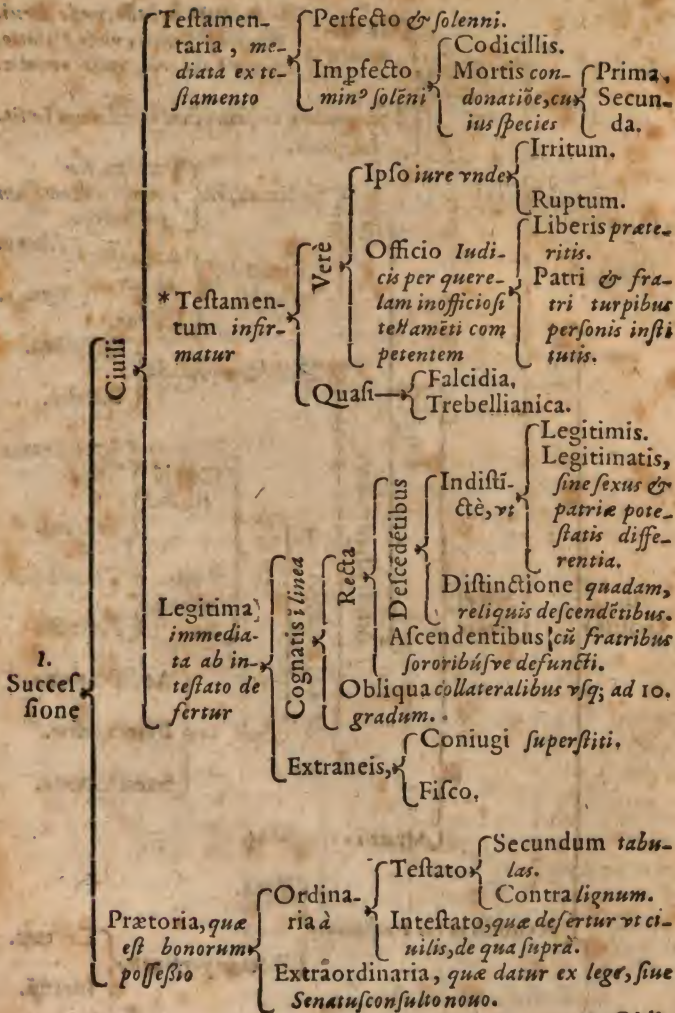 Testamen-
taria, me-
diata ex te-
stamento
Perfecto & solenni.
Impfecto
minꝰ solēni
Codicillis.
Mortis con-
donatiōe, cu
ius species
Prima,
Secun-
da.
* Testamen-
tum infir-
matur
Verè
Ipso iure vnde
Irritum.
Ruptum.
Officio Iudi-
cis per quere-
lam inofficiosi
testamēti com
petentem
Liberis præte-
ritis.
Patri & fra-
tri turpibus
personis insti
tutis.
Quasi
Falcidia,
Trebellianica.
1.
Succes-
sione
Ciuili
Legitima
immedia-
ta ab in-
testato de
fertur
Cognatis ī linea
Recta
Descēdētibus
Indistī-
ctè, vt
Legitimis.
Legitimatis,
sine sexus &
patriæ pote-
statis diffe-
rentia.
Distinctione quadam,
reliquis descendētibus.
Ascendentibus cū fratribus
sororibúsve defuncti.
Obliqua collateralibus vsq; ad 10.
gradum.
Extraneis,
Coniugi superstiti.
Fisco.
Prætoria, quæ
est bonorum
possessio
Ordina-
ria à
Testato
Secundum tabu-
las.
Contra lignum.
Intestato, quæ defertur vt ci-
uilis, de qua suprà.
Extraordinaria, quæ datur ex lege, siue
Senatusconsulto nouo.